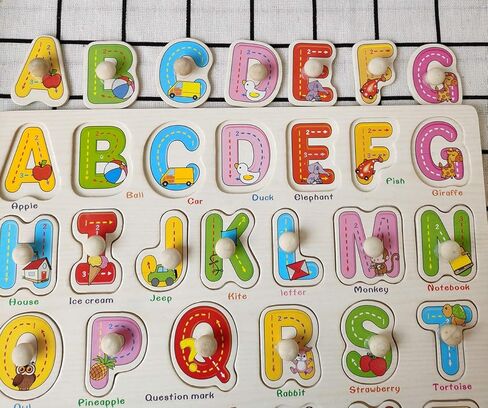 A B C D E F G
A B C D E F G
Apple Ball Car Duck Elephant Fish Giraffe
H I J K L M N
House Ice cream Jeep Kite letter Monkey Notebook
O P Q R S T
Owl Pineapple Question mark Rabbit Strawberry Tortoise